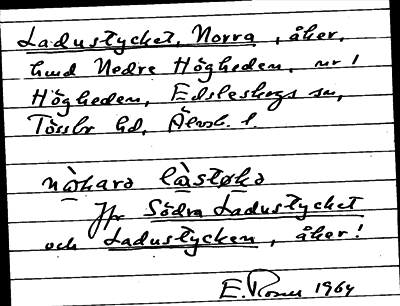 Ladustycket, Norra, åker,
hmd Nedre Högheden, nr 1
Högheden, Edsleskogs sn,
Tössbo hd, Älvsb. l.
nò̱rarə là̱støkə
Jfr Södra Ladustycket
och Ladustycken, åker!
E. 1964